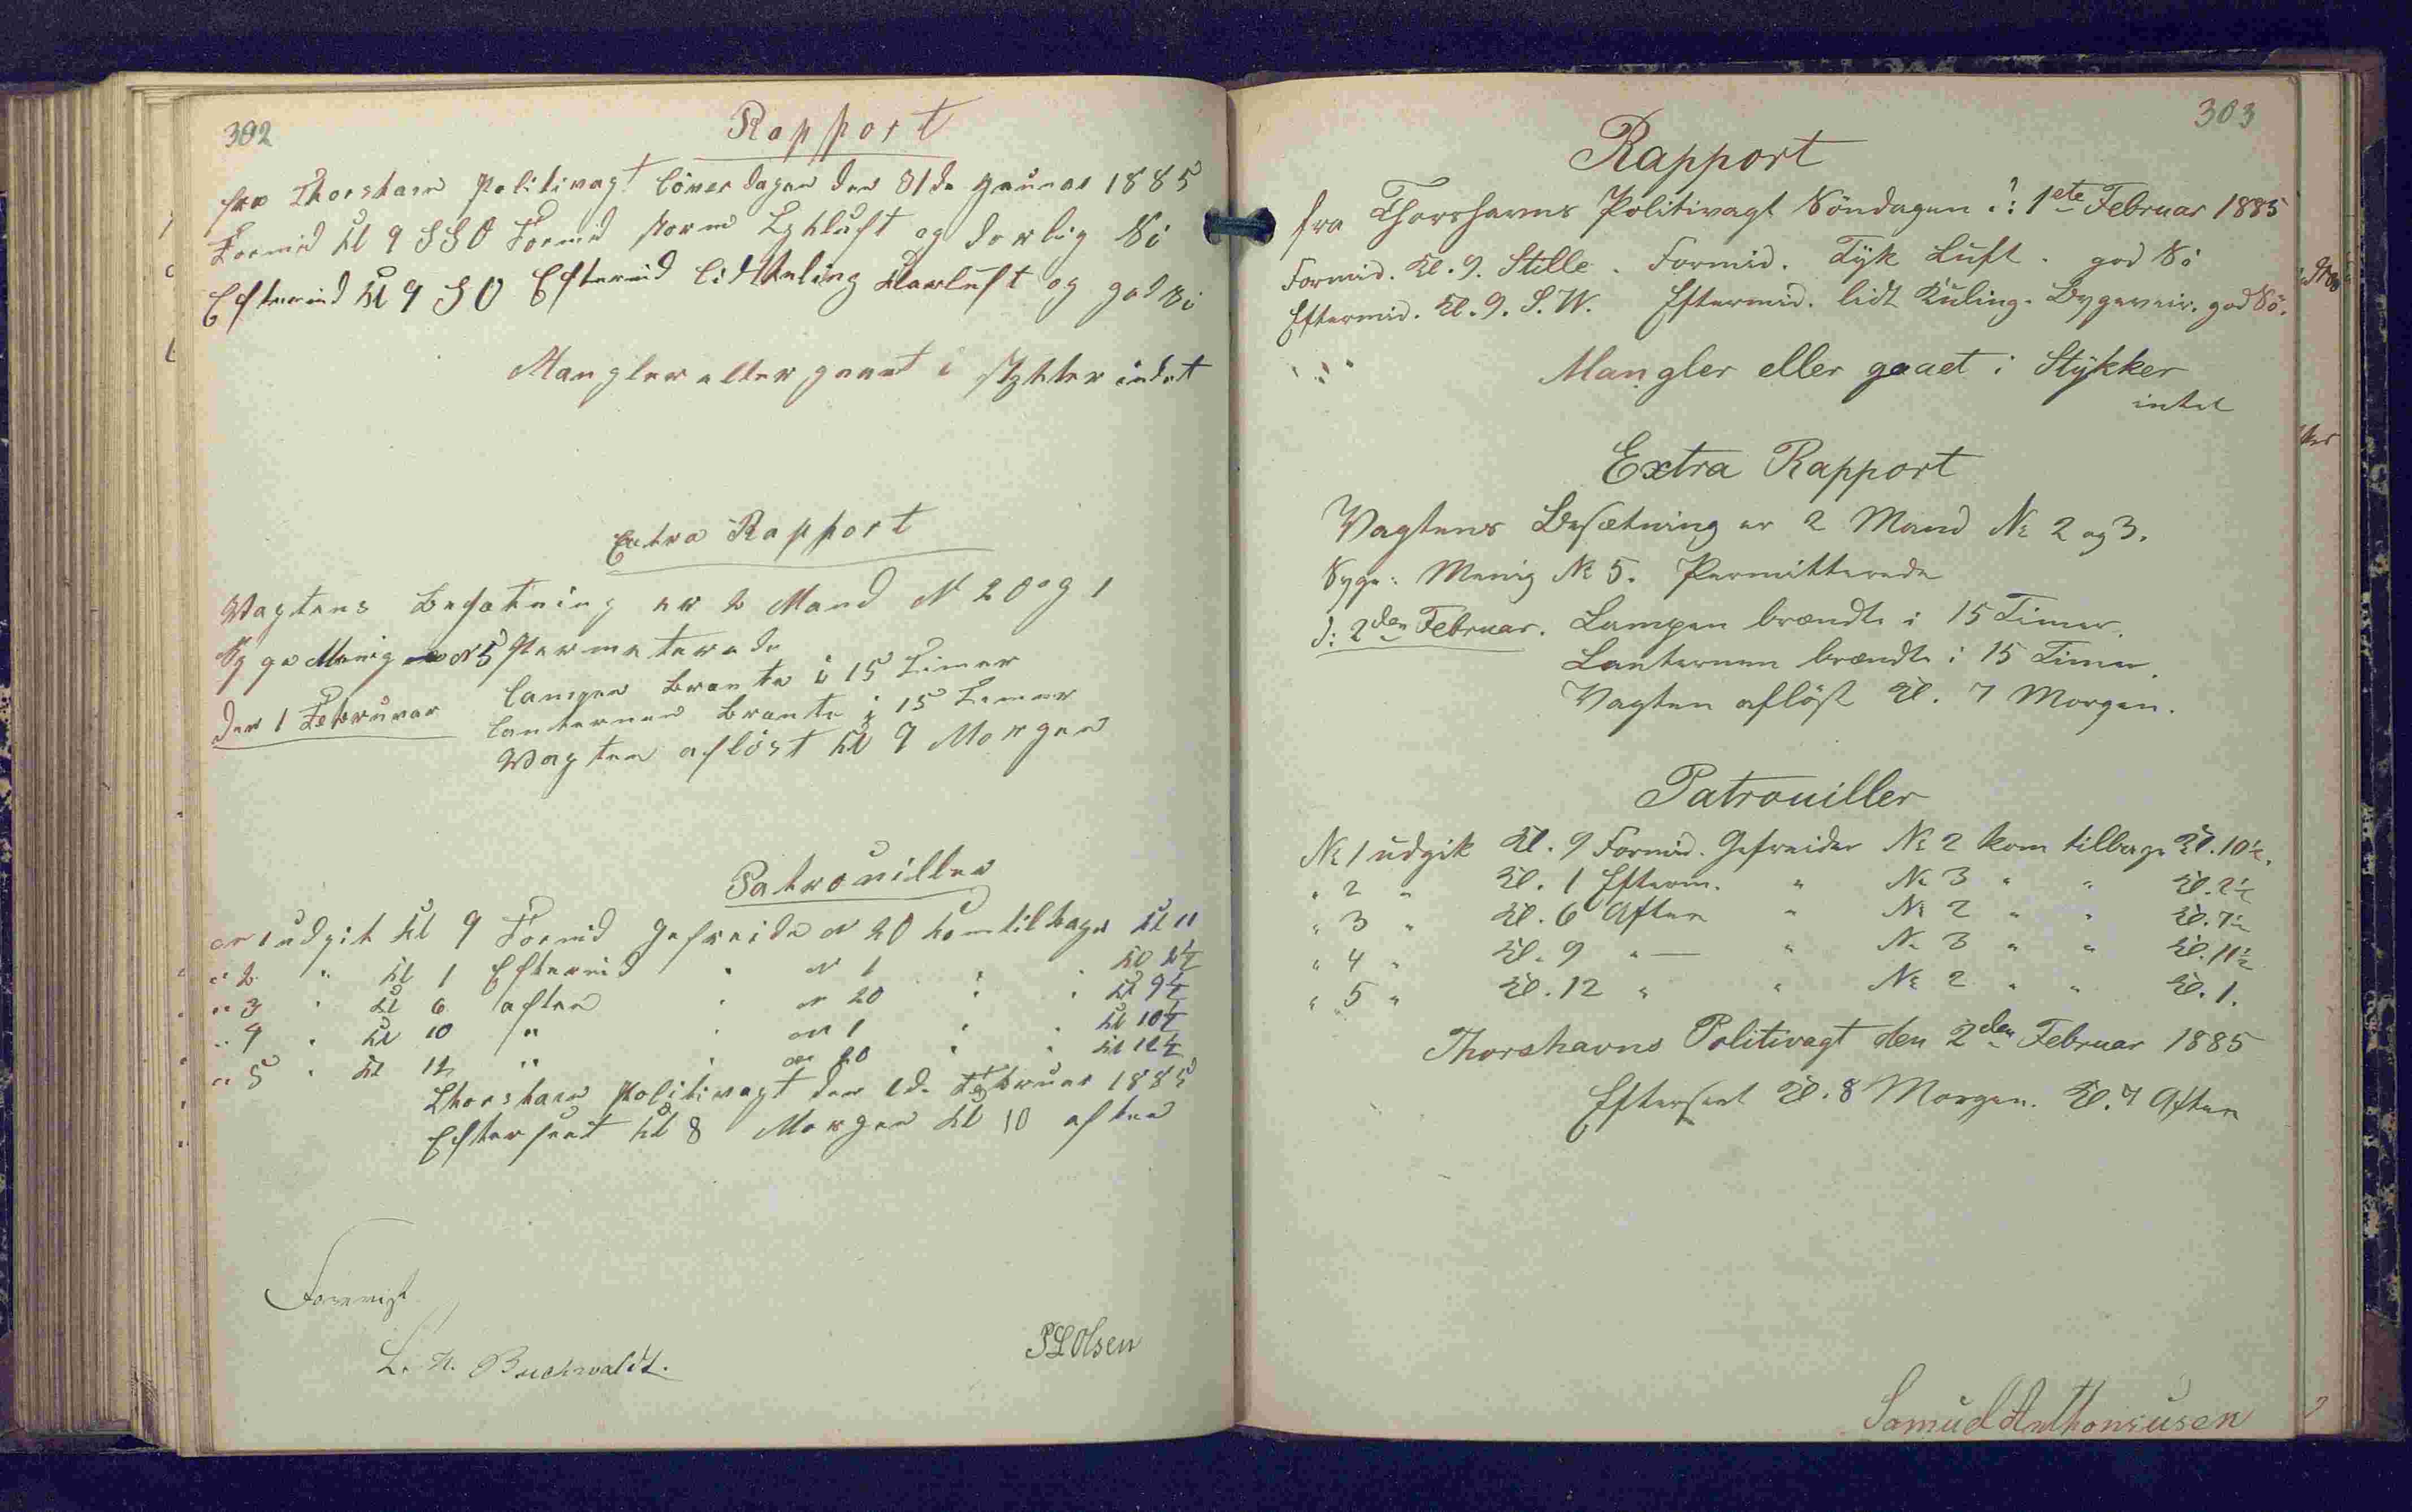 302
Rapport
fra Thorshavn Politivagt Löverdagen den 31de Januar 1885
Formid Kl 9 SSO Formid storm Tykluft og dorlig Sö
Eftermid Kl 9 SO Eftermid lidt Kuling Klarluft og god Sö
Mangler eller gaaet i stykker intet
Extra Rapport
Vagtens Besatning er 2 Mand N 20 og 1
Syge Menig N 5 Permeterede
Den 1 Februar Lampen Brante i 15 Timer
Lanternen Brante i 15 Timer
Vagten aflöst Kl 7 Morgen
Patrouiller
N 1 udgik Kl 9 Formid Gefreide N 20 kom tilbage Kl 11
" 2 " Kl 1 Eftermid " N 1 " " Kl 2½
" 3 " Kl 6 aften " N 20 " " Kl 9½
" 4 " Kl 10 " " N 1 " " Kl 10½
" 5 " Kl 12 " " N 20 " " Kl 12½
Thorshavn Politivagt den 1de Februar 1885
Efterseet Kl 8 Morgen Kl 10 aften
Foreviist
L. H. Buchwaldt.
PLOlsen
303
Rapport
fra Thorshavns Politivagt Söndagen d: 1ste Februar 1885
Formid. Kl. 9. Stille. Formid. Tyk Luft. god Sö
Eftermid. Kl. 9. S.W. Eftermid. lidt Kuling. Bygeveir. god Sö.
Mangler eller gaaet i Stykker
intet
Extra Rapport
Vagtens Besætning er 2 Mand No 2 og 3.
Syge: Menig No 5. Permitterede
d: 2den Februar. Lampen brændte i 15 Timer.
Lanternen brændte i 15 Timer.
Vagten aflöst Kl. 7 Morgen.
Patrouiller
No 1 udgik Kl. 9 Formid. Gefreider No 2 kom tilbage Kl. 10½.
" 2 " Kl. 1 Efterm. " No 3 " " Kl. 2½
" 3 " Kl. 6 Aften " No 2 " " Kl. 7½
" 4 " Kl. 9 " — " No 3 " " Kl. 11½
" 5 " Kl. 12 " " No 2 " " Kl. 1.
Thorshavns Politivagt den 2den Februar 1885
Efterseet Kl. 8 Morgen. Kl. 7 Aften
Samuel Anthoniusen